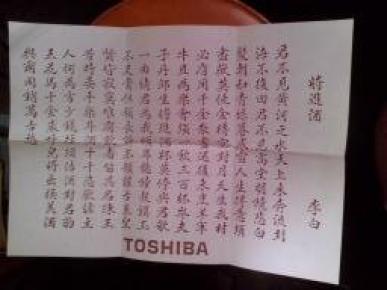 將進酒 李白
君不見黃河之水天上來奔流到
海不復回君不見高堂明鏡悲白
髮朝如青絲暮成雪人生得意須
盡歡莫使金樽空對月天生我材
必有用千金散盡還復來烹羊宰
牛且為樂會須一飲三百杯岑夫
子丹邱生將進酒杯莫停與君歌
一曲請君為我傾耳聽鐘鼓饌玉
不足貴但願長醉不願醒古來聖
賢皆寂寞唯有飲者留其名陳王
昔時宴平樂斗酒十千恣歡謔主
人何為言少錢徑須沽酒對君酌
五花馬千金裘呼兒將出換美酒
與爾同銷萬古愁
TOSHIBA